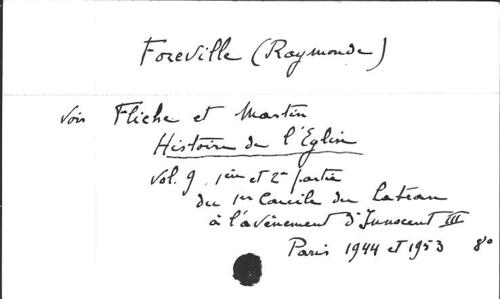 Foreville (Raymonde)
Voir Fliche et Martin
Histoire de l'Eglise
Vol. 9. 1ère et 2e partie
du 1er Concile du Latran
à l'avènement d'Innocent III
Paris 1944 et 1953 8°